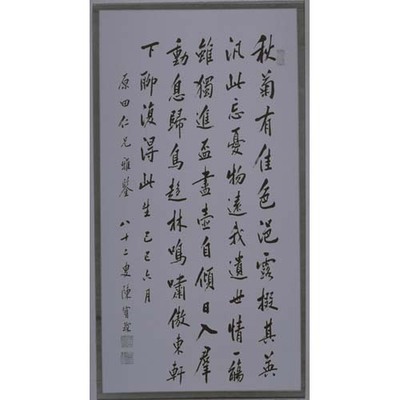 秋菊有佳色浥露掇其英
汎此忘憂物遠我遺世情一觴
雖獨進盃盡壺自傾日入羣
動息歸鳥趍林鳴嘯傲東軒
下聊復得此生 己巳六月
原田仁兄雅鑒 八十二叟陳寶琛